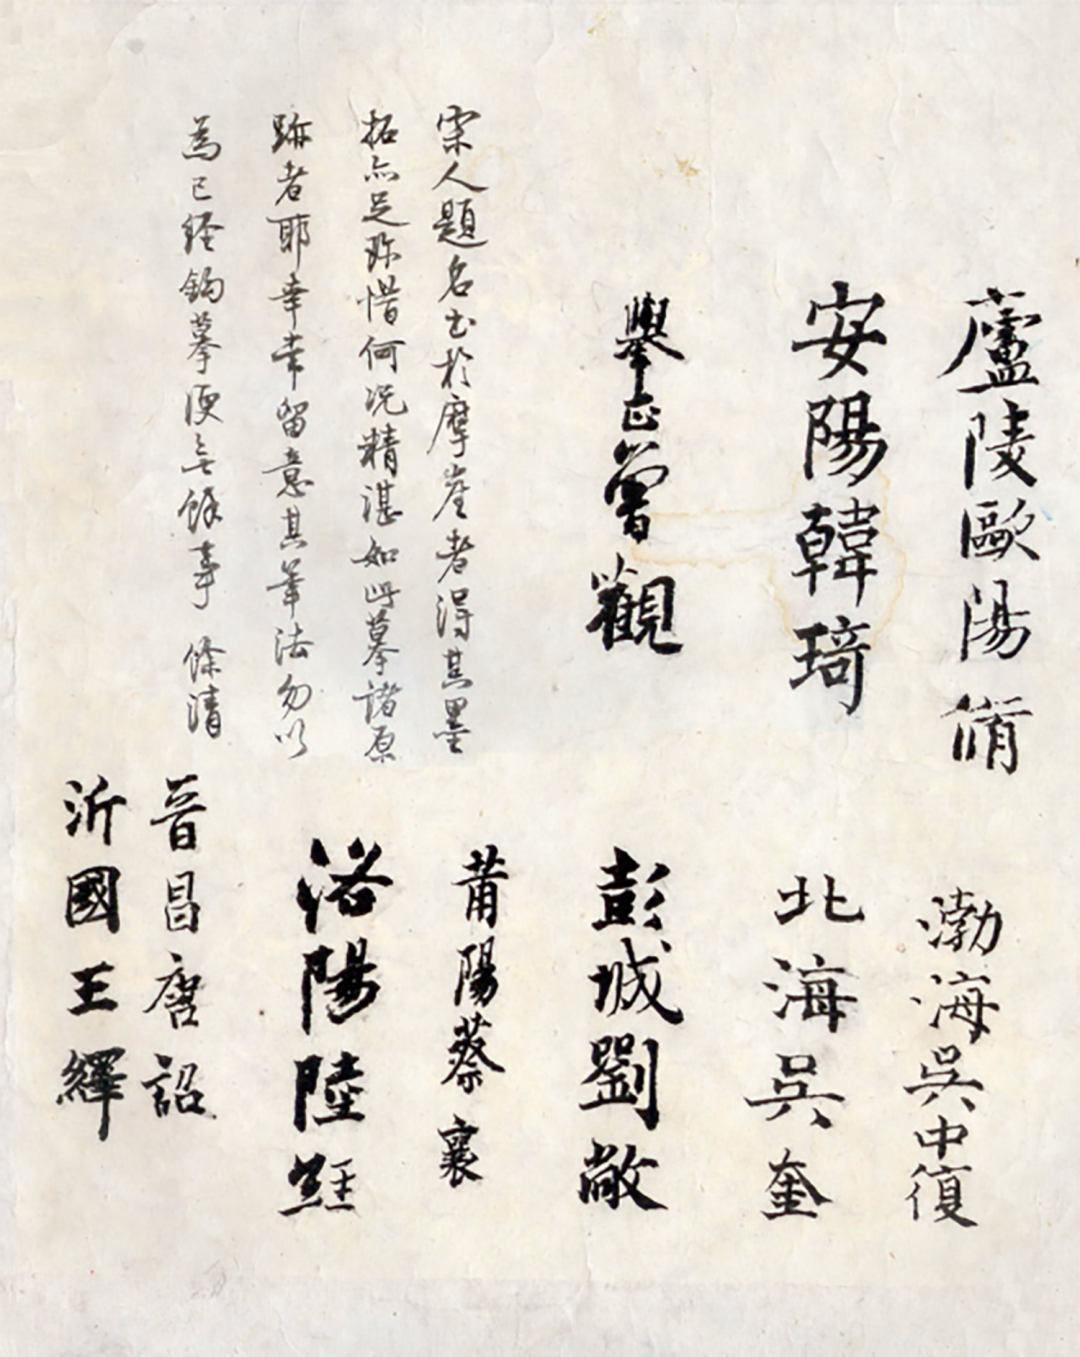 廬陵歐陽脩
安陽韓琦
舉正曾觀
宋人題名書於摩崖者得其墨
拓亦足珍惜何況精湛如此摹諸原
跡者耶幸幸留意其筆法勿以
為已經鈎摹便無餘事 條清
渤海吳中復
北海吳奎
彭城劉敞
莆陽蔡襄
洛陽陸經
晉昌唐詔
沂國王繹